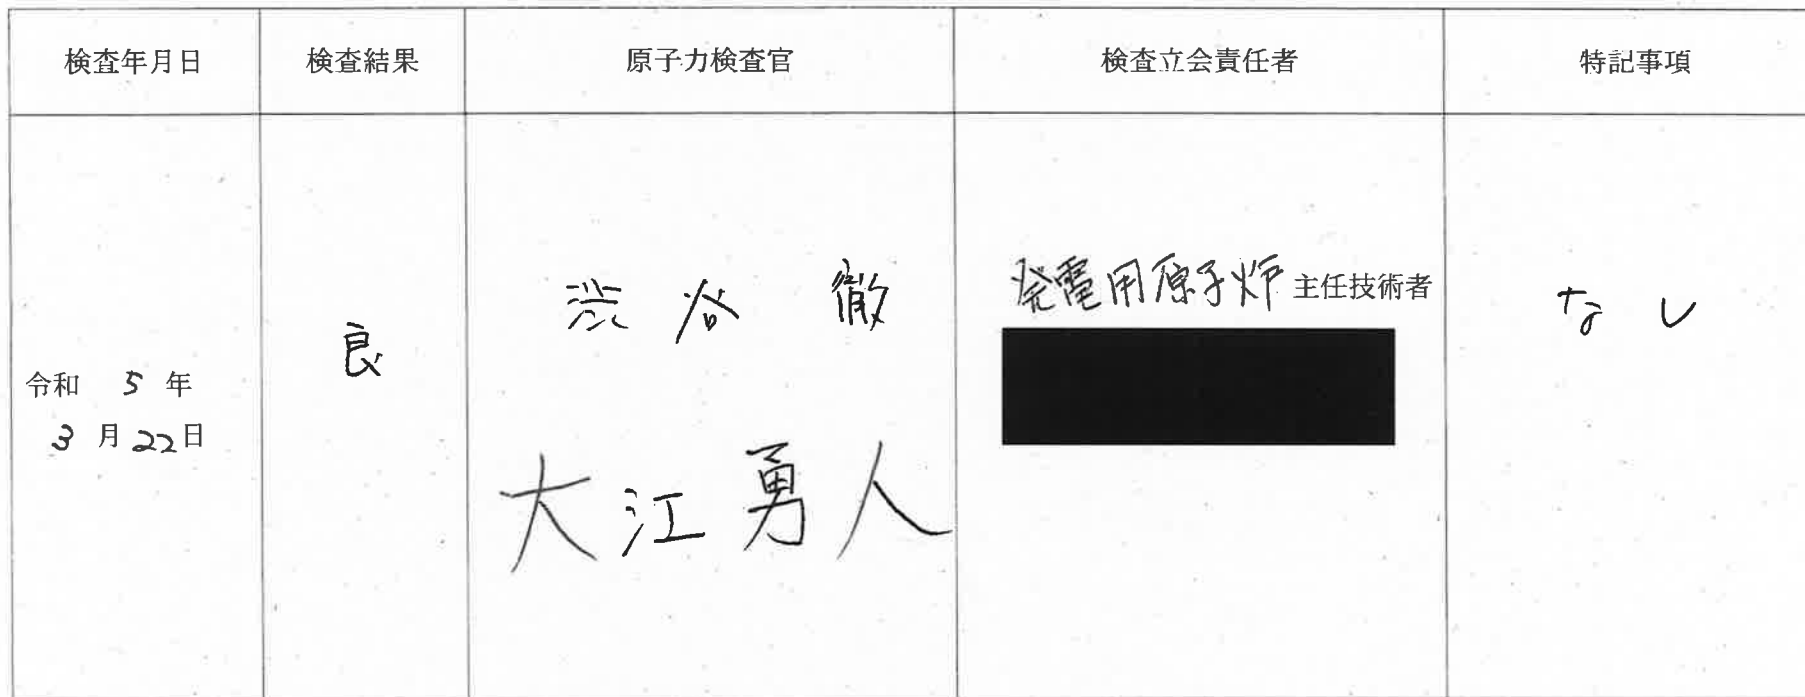 検査年月日 検査結果 原子力検査官 検査立会責任者 特記事項
令和 5 年
3 月 22 日
良
渋谷 徹
大江 勇人
発電用原子炉 主任技術者
なし